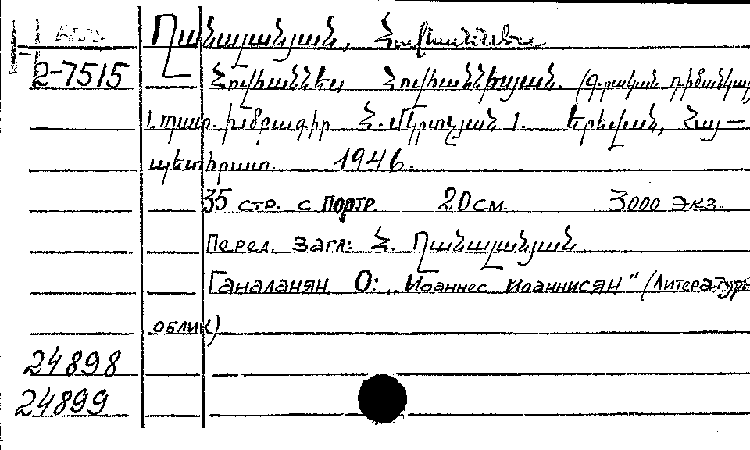 Ղանալանյան, Հովհաննես
2-7515
Հովհաննես Հովհաննիսյան. (Գրական դիմանկար
պատ. խմբագիր Հ. Մկրտչյան). Երևան, Հայ—
պետհրատ. 1946.
35 стр. с портр. 20 см. 3000 экз.
Перед загл: Հ. Ղանալանյան
Ганаланян О: „Иоаннес Иоаннисян" (Литературн
облик)
24898
24899